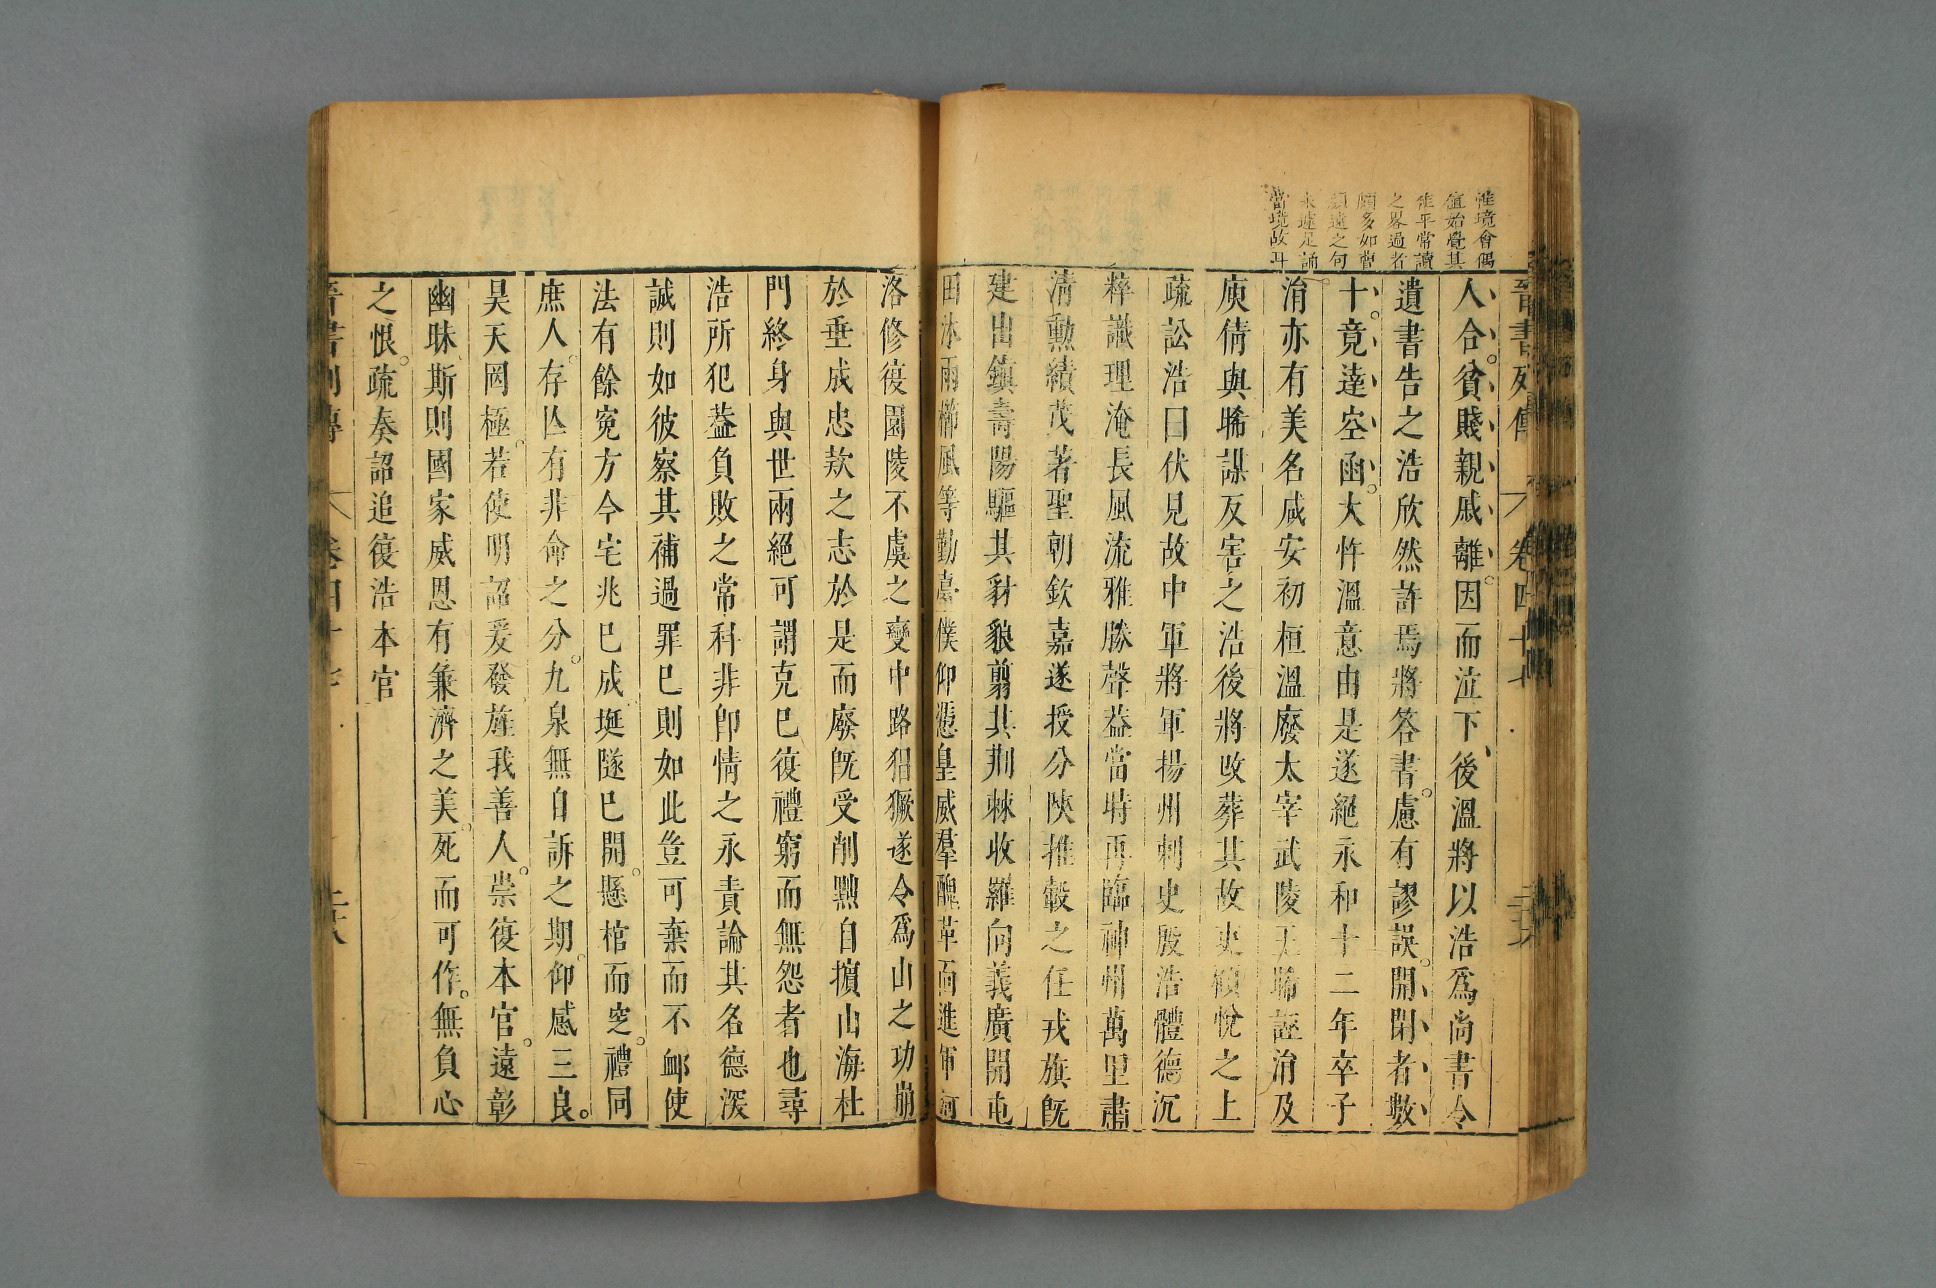 惟境會偶
值始覺其
非平常讀
之畧過者
頗多如曹
顏遠之句
未遽足誦
當境故耳
晉書列傳 卷四十七
人合貧賤親戚離因而泣下後溫將以浩爲尚書令
遺書告之浩欣然許焉將答書慮有謬誤開閉者數
十竟達空函大忤溫意由是遂絕永和十二年卒子
涓亦有美名咸安初桓溫廢太宰武陵王晞誣涓及
庾倩與晞謀反害之浩後將改葬其故吏顧悅之上
疏訟浩曰伏見故中軍將軍揚州刺史殷浩體德沉
粹識理淹長風流雅勝聲葢當時再臨神州萬里肅
清勲績茂著聖朝欽嘉遂授分陝推轂之任戎旗旣
建出鎮壽陽驅其豺狼翦其荆棘收羅向義廣開屯
田沐雨櫛風等勤臺僕仰憑皇威羣醜革面進軍河
洛修復園陵不虞之變中路猖獗遂令爲山之功崩
於垂成忠欵之志於是而廢旣受削黜自擯山海杜
門終身與世兩絕可謂克己復禮窮而無怨者也尋
浩所犯葢負敗之常科非卽情之永責論其名德深
誠則如彼察其補過罪己則如此豈可棄而不衈使
法有餘寃方今宅兆已成埏隧已開懸棺而窆禮同
庶人存亾有非命之分九泉無自訴之期仰感三良
昊天罔極若使明詔爰發旌我善人崇復本官遠彰
幽昧斯則國家威恩有兼濟之美死而可作無負心
之恨疏奏詔追復浩本官
晉書列傳 卷四十七 二十八